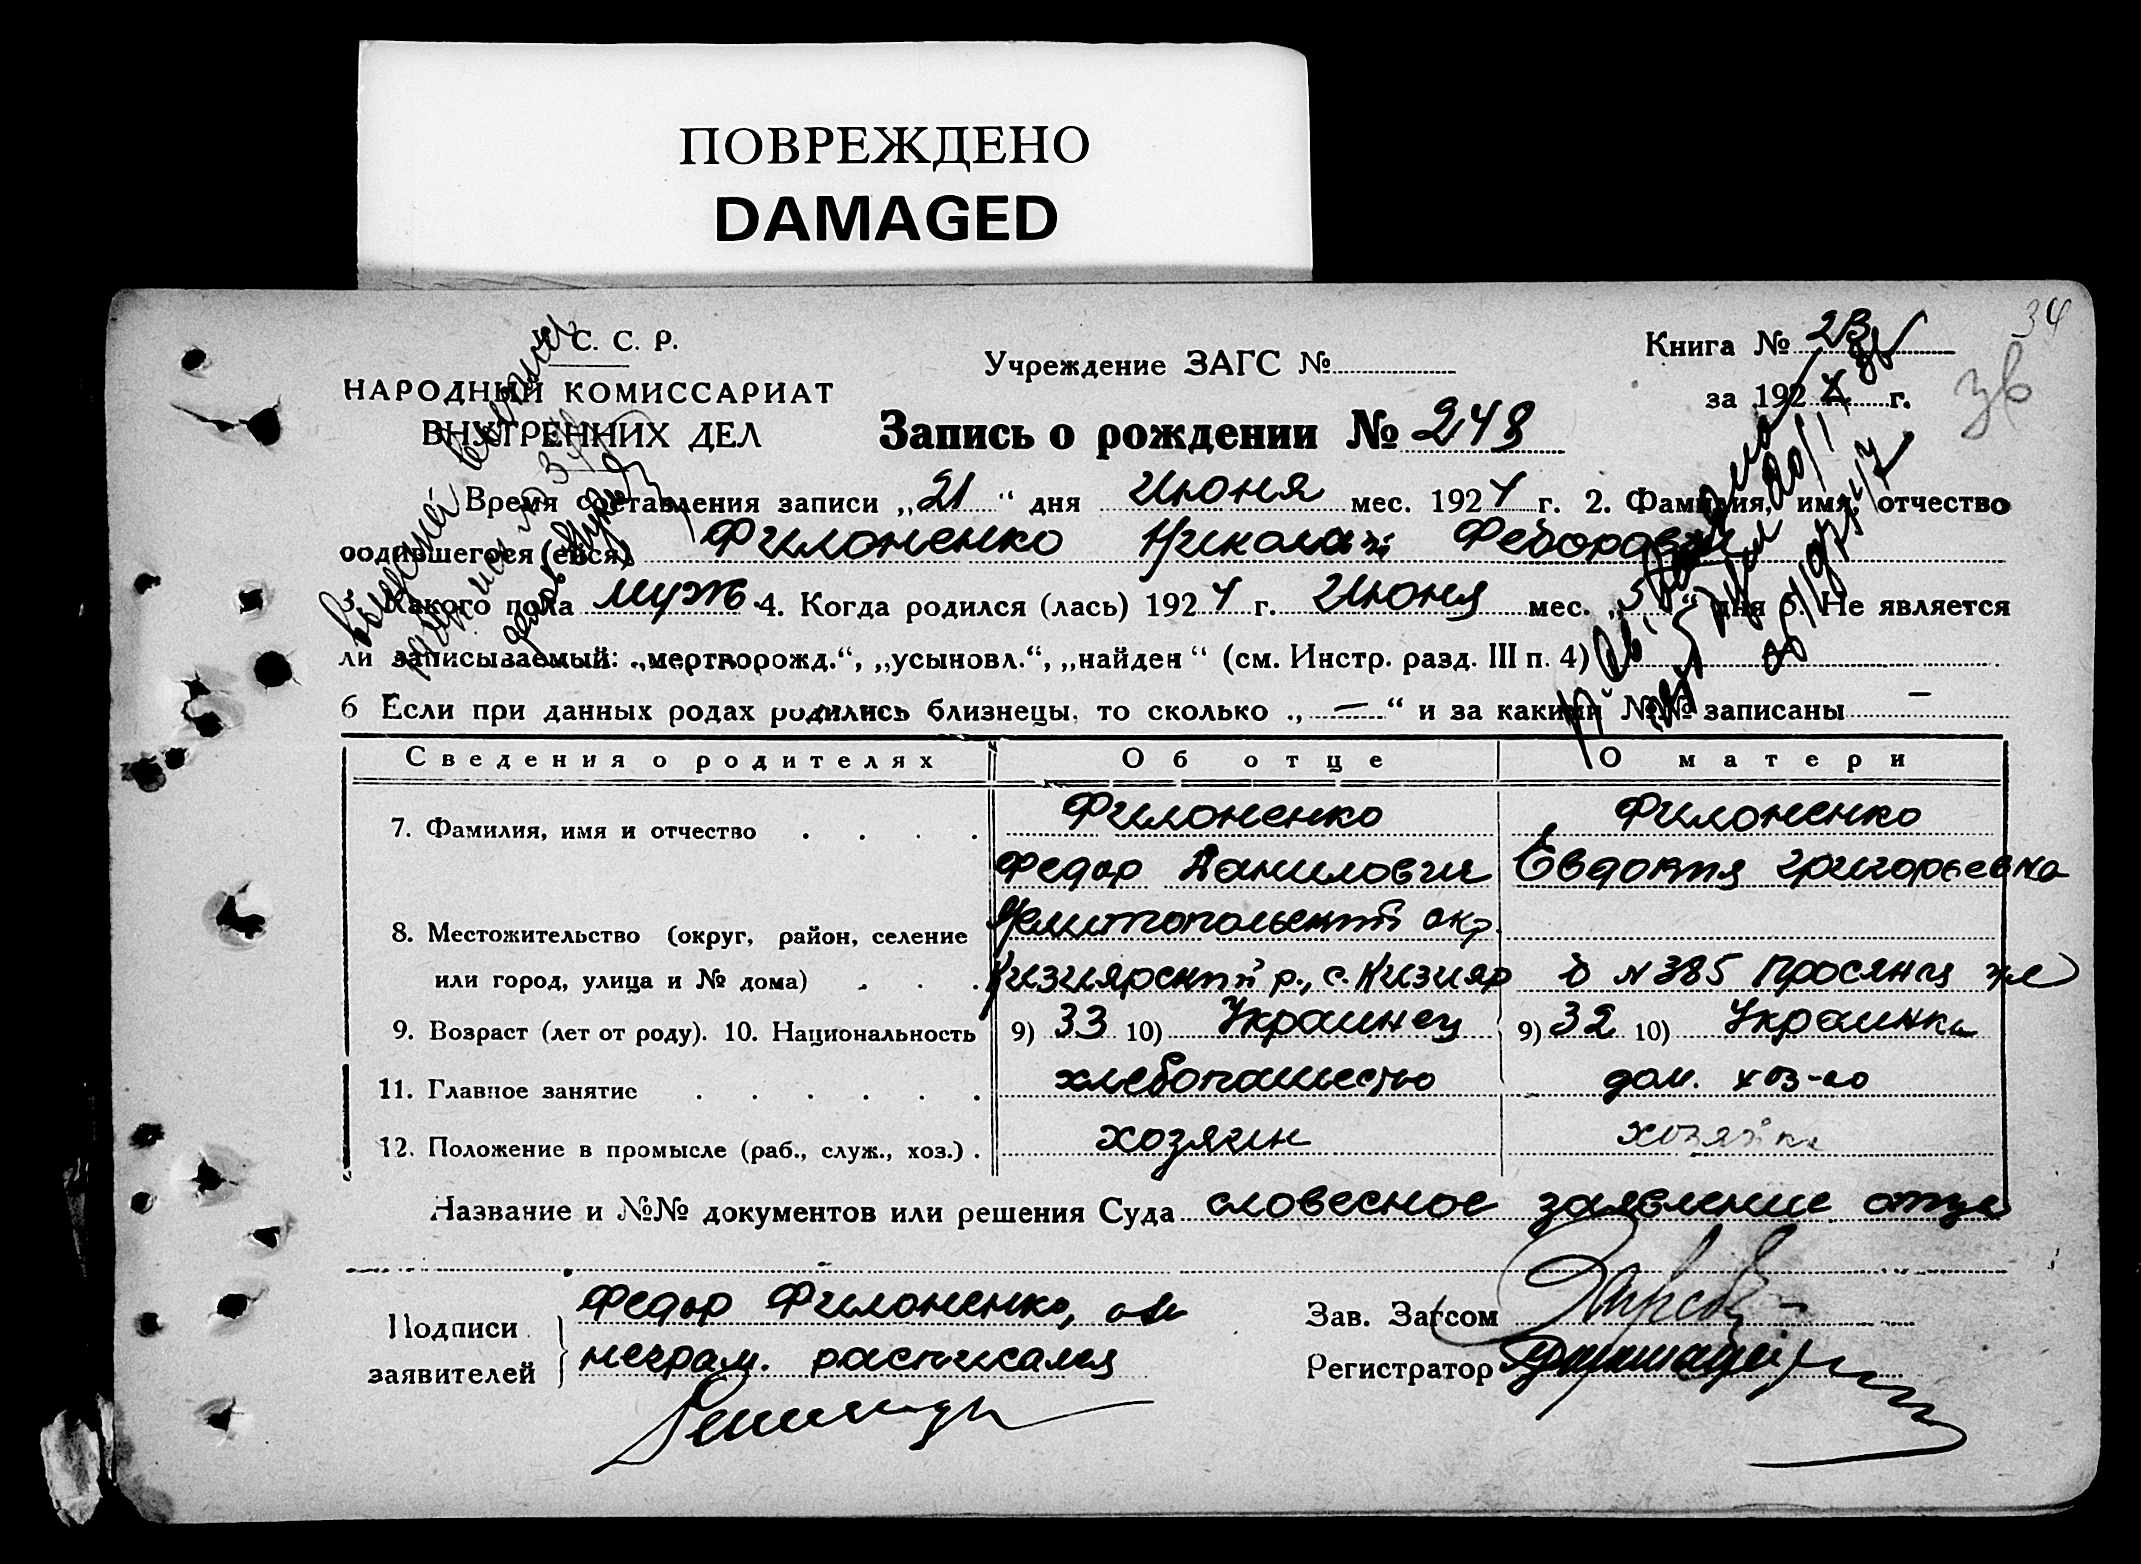 ПОВРЕЖДЕНО
DAMAGED
34
36
С. С. Р.
НАРОДНЫЙ КОМИССАРИАТ
ВНУТРЕННИХ ДЕЛ
Учреждение ЗАГС №
Книга № 2
за 1924 г.
Запись о рождении № 248
Время составления записи „21“ дня Июня мес. 1924 г. 2. Фамилия, имя, отчество
родившегося (ейся) Филоненко Николай Федорович
Какого пола муж. 4. Когда родился (лась) 1924 г. Июня мес. „5“ дня 5. Не является
ли записываемый: „мертворожд.“, „усыновл.“, „найден“ (см. Инстр. разд. III п. 4)
6 Если при данных родах родились близнецы, то сколько „—“ и за какими №№ записаны —
Сведения о родителях Об отце О матери
7. Фамилия, имя и отчество . . . . Филоненко Филоненко
Федор Данилович Евдокия Григорьевна
8. Местожительство (округ, район, селение Мелитопольский окр.
или город, улица и № дома) . . . Кизиярский р., с. Кизияр д N 385
9. Возраст (лет от роду). 10. Национальность 9) 33 10) Украинец 9) 32 10) Украинка
11. Главное занятие . . . . . . хлебопашество дом. хоз-во
12. Положение в промысле (раб., служ., хоз.) . хозяин хозяйка
Название и №№ документов или решения Суда словесное заявление отца
Подписи заявителей } Федор Филоненко, а за
неграм. расписался
Зав. Загсом
Регистратор